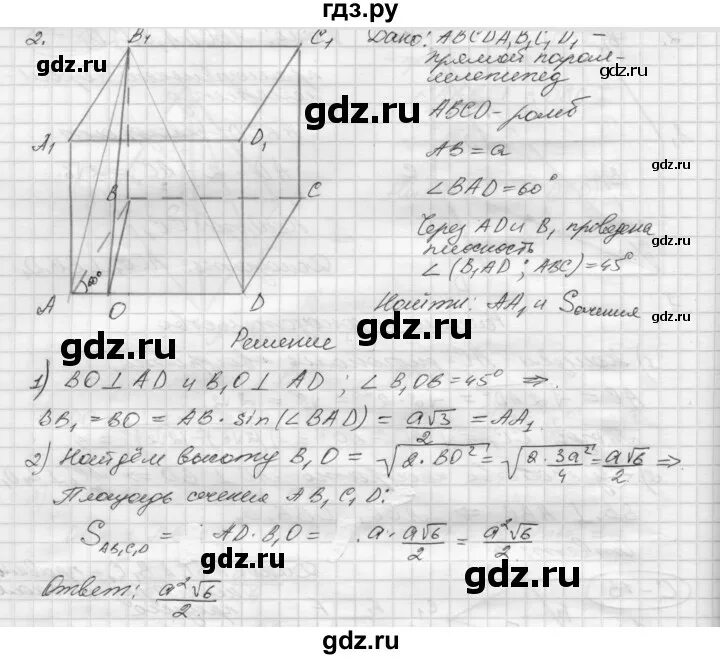 гдз.ру
2.
B₁
C₁
A₁
D₁
B
C
60°
A
O
D
Дано: ABCDA₁B₁C₁D₁ –
прямой парал-
лелепипед
ABCD – ромб
AB = a
∠BAD = 60°
Через AD и B₁ проведена
плоскость
∠(B₁AD; ABC) = 45°
Найти: AA₁ и Sсечения
Решение
1) BO ⊥ AD и B₁O ⊥ AD; ∠B₁OB = 45° ⇒
BB₁ = BO = AB · sin(∠BAD) = a√3/2 = AA₁.
2) Найдём высоту B₁O = √(2·BO²) = √(2·3a²/4) = a√6/2 ⇒
Площадь сечения AB₁C₁D:
S_AB₁C₁D = AD · B₁O = a · a√6/2 = a²√6/2
Ответ: a²√6/2.
gdz.ru
gdz.ru
gdz.ru
gdz.ru
gdz.ru
gdz.ru
gdz.ru
gdz.ru
gdz.ru
gdz.ru
gdz.ru
gdz.ru
гдз.ру